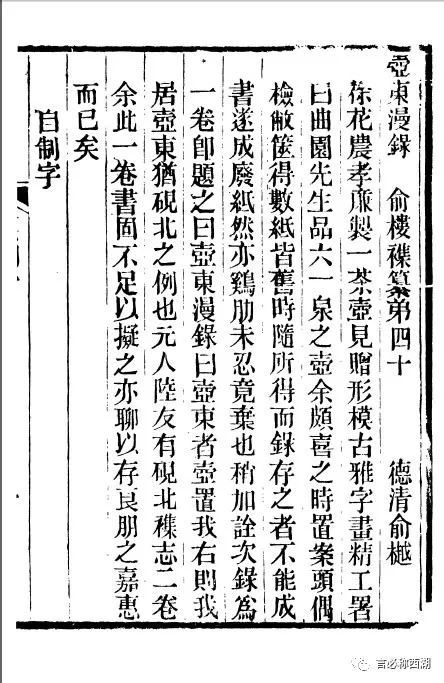 壺東漫錄　俞樓襍纂第四十　德清俞樾
徐花農孝廉製一茶壺見贈形模古雅字畫精工署
曰曲園先生品六一泉之壺余頗喜之時置案頭偶
檢敝篋得數紙皆舊時隨所得而錄存之者不能成
書遂成廢紙然亦鷄肋未忍竟棄也稍加詮次錄爲
一卷卽題之曰壺東漫錄曰壺東者壺置我右則我
居壺東猶硯北之例也元人陸友有硯北襍志二卷
余此一卷書固不足以擬之亦聊以存良朋之嘉惠
而已矣
自制字
言必称西湖